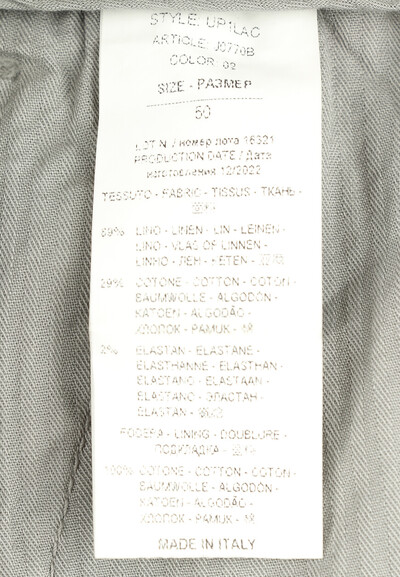 STYLE: UP1LAC
ARTICLE: J0770B
COLOR: 02
SIZE - РАЗМЕР
50
LOT N / номер лота 16321
PRODUCTION DATE / Дата
изготовления 12/2022
TESSUTO - FABRIC - TISSUS - ТКАНЬ -
69% LINO - LINEN - LIN - LEINEN -
LINO - VLAS OF LINNEN -
LINHO - ЛЕН - KETEN -
29% COTONE - COTTON - COTON -
BAUMWOLLE - ALGODON -
KATOEN - ALGODÃO -
ХЛОПОК - PAMUK - 棉
2% ELASTAN - ELASTANE -
ELASTHANNE - ELASTHAN -
ELASTANO - ELASTAAN -
ELASTANO - ЭЛАСТАН -
ELASTAN -
FODERA - LINING - DOUBLURE -
ПОДКЛАДКА -
100% COTONE - COTTON - COTON -
BAUMWOLLE - ALGODON -
KATOEN - ALGODÃO -
ХЛОПОК - PAMUK - 棉
MADE IN ITALY